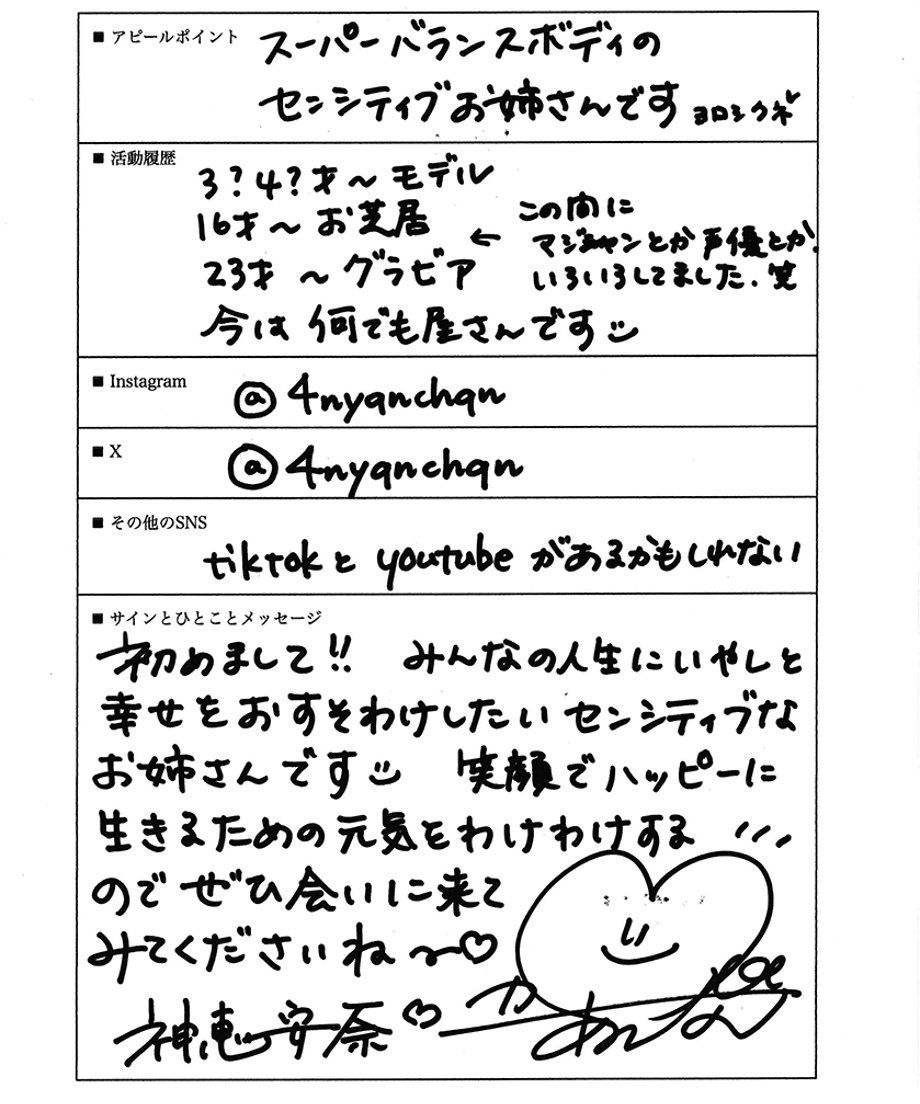 ■ アピールポイント
スーパーバランスボディの
センシティブお姉さんです ヨロシクネ
■ 活動履歴
3?4?才～モデル
16才～お芝居
23才～グラビア
← この間に
マジシャンとか声優とか.
いろいろしてました.笑
今は何でも屋さんです
■ Instagram
@4nyanchan
■ X
@4nyanchan
■ その他のSNS
tiktokとyoutubeがあるかもしれない
■ サインとひとことメッセージ
初めまして!! みんなの人生にいやしと
幸せをおすそわけしたいセンシティブな
お姉さんです 笑顔でハッピーに
生きるための元気をわけわけする
のでぜひ会いに来て
みてくださいね～♡
神恵安奈♡